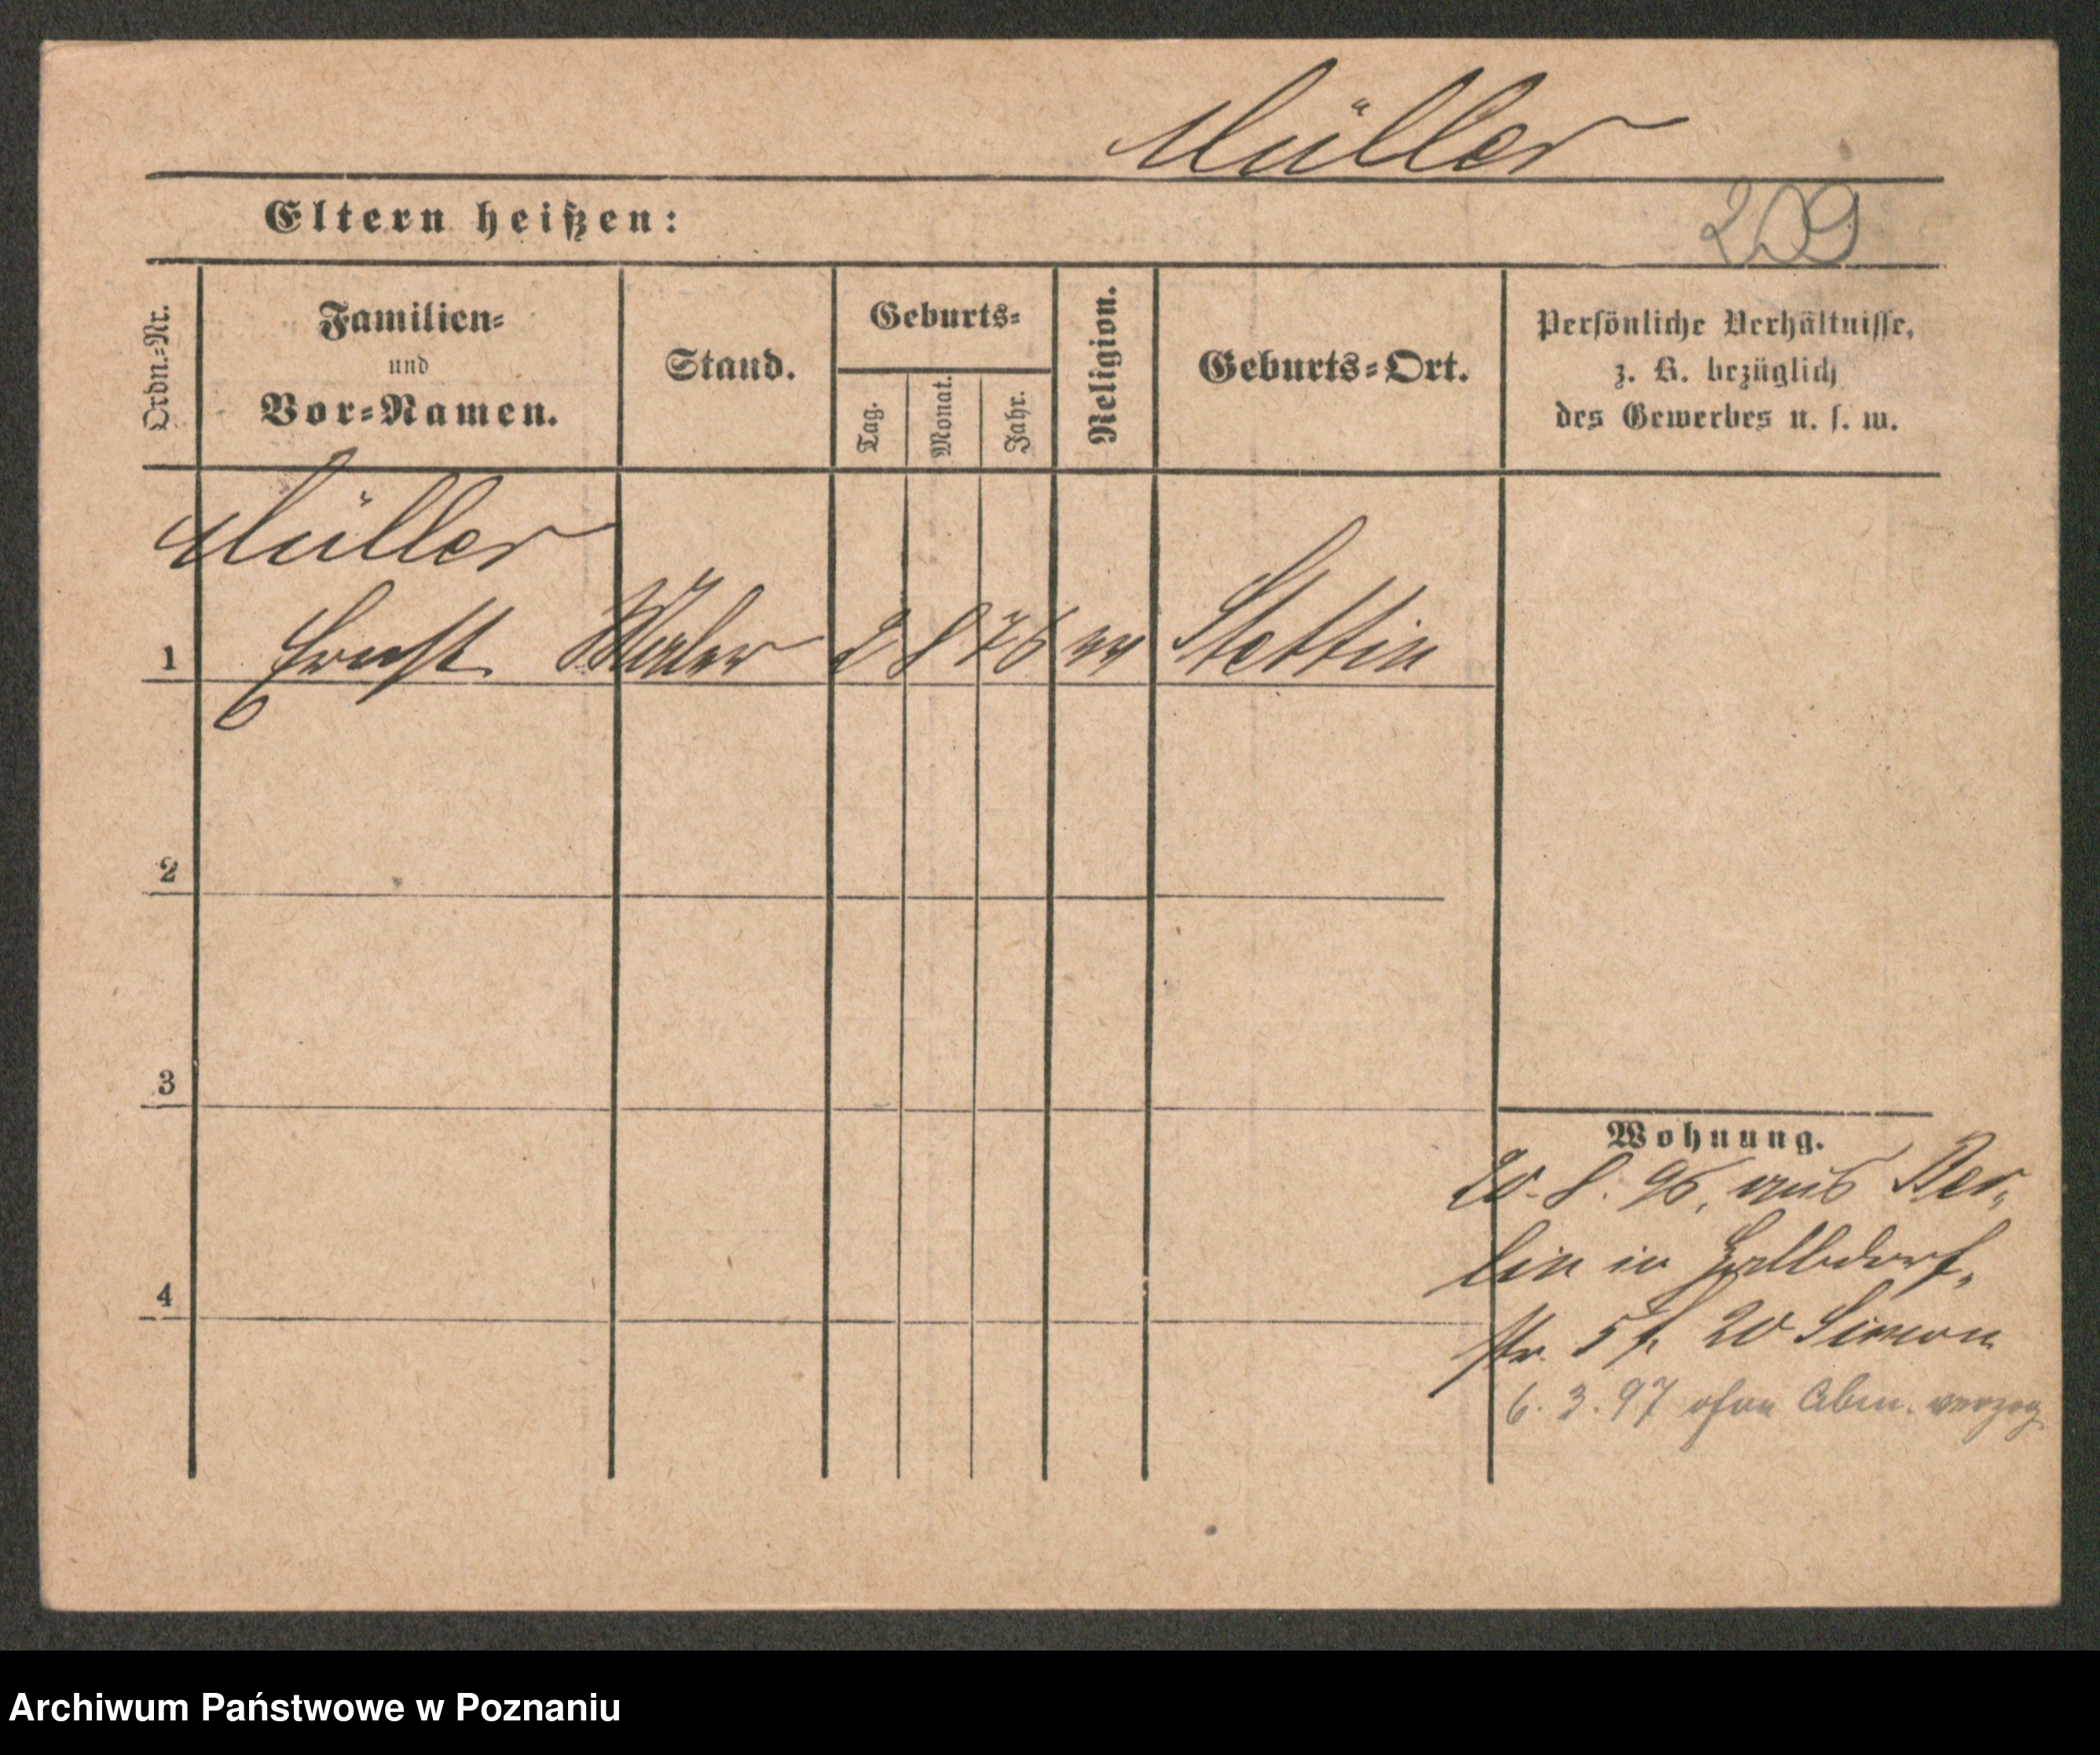 Müller
Eltern heißen:
209
Ordn.=Nr.
Familien=
und
Vor=Namen.
Stand.
Geburts=
Tag.
Monat.
Jahr.
Religion.
Geburts=Ort.
Persönliche Verhältnisse,
z. B. bezüglich
des Gewerbes u. s. w.
Müller
1 Ernst Maler 2 8 76 ev Stettin
2
3
4
Wohnung.
20. 8. 96, aus Ber-
lin in Halbdorf-
str. 5 20 Simon
6. 3. 97 ohne Abm. verzog
Archiwum Państwowe w Poznaniu